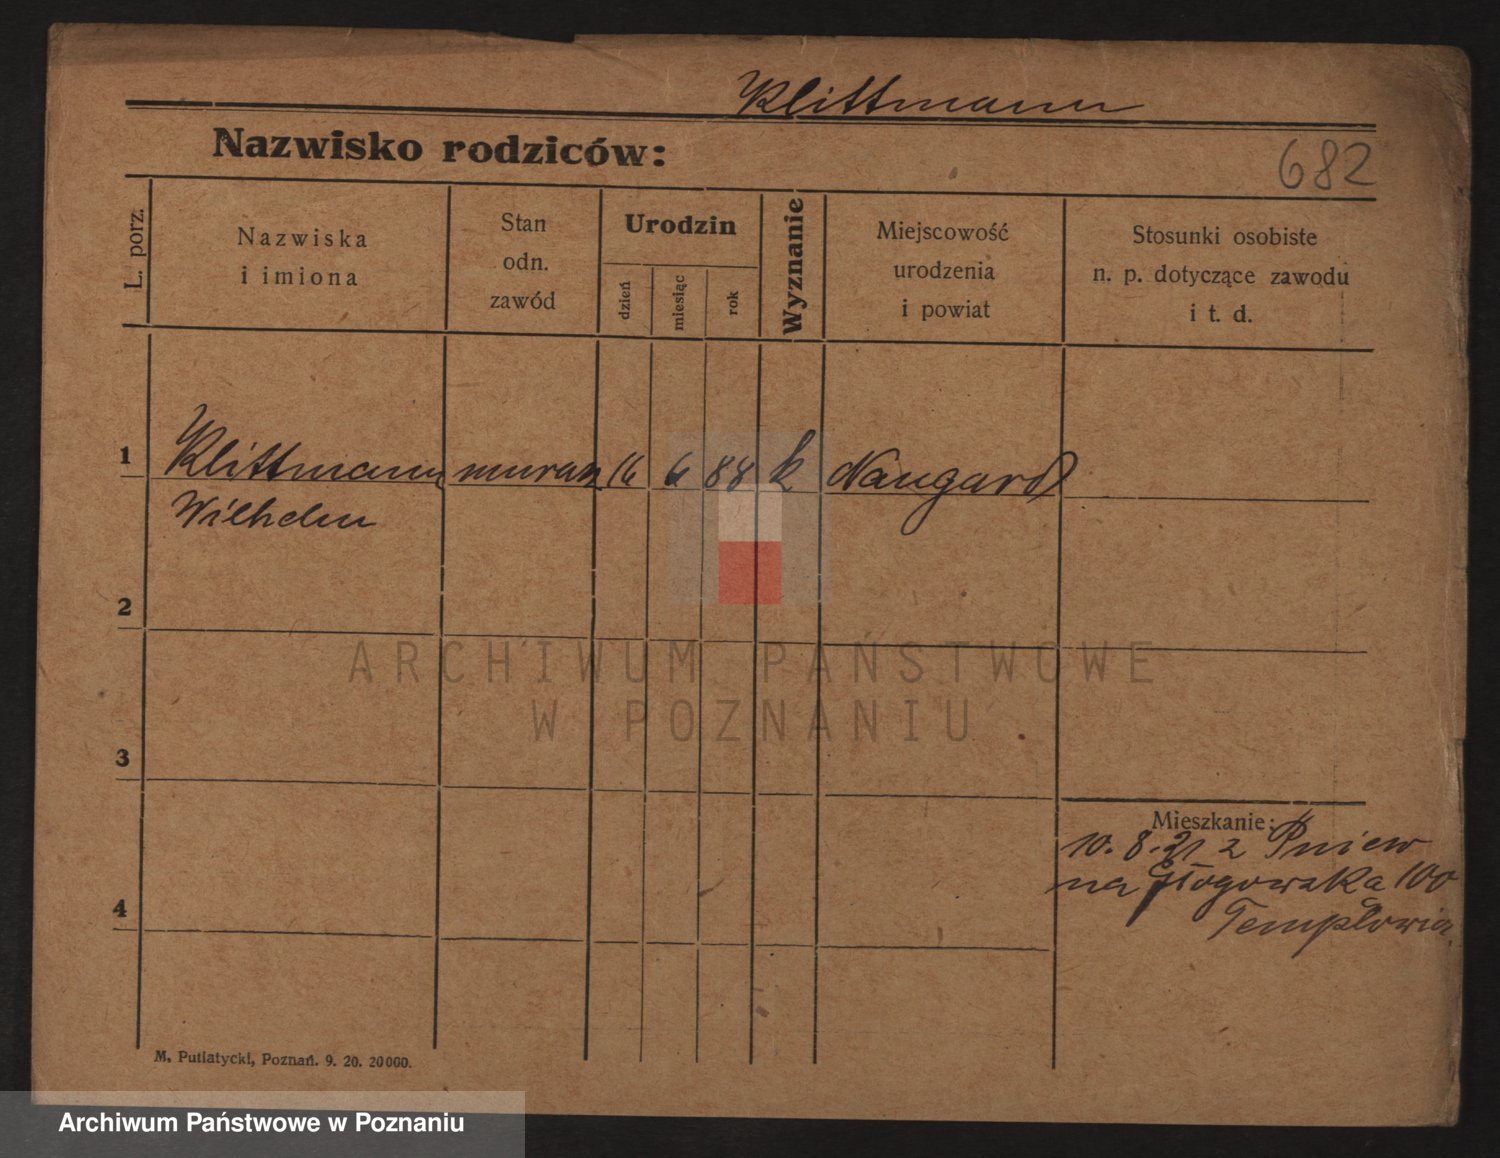 Klittmann
Nazwisko rodziców:
682
L. porz.
Nazwiska
i imiona
Stan
odn.
zawód
Urodzin
dzień
miesiąc
rok
Wyznanie
Miejscowość
urodzenia
i powiat
Stosunki osobiste
n. p. dotyczące zawodu
i t. d.
1
Klittmann murarz 16 6 88 k Naugard
Wilhelm
2
ARCHIWUM PAŃSTWOWE
W POZNANIU
3
Mieszkanie:
10. 8. 21 z Pniew
na Głogowska 100
4
M. Putiatycki, Poznań. 9. 20. 20000.
Archiwum Państwowe w Poznaniu